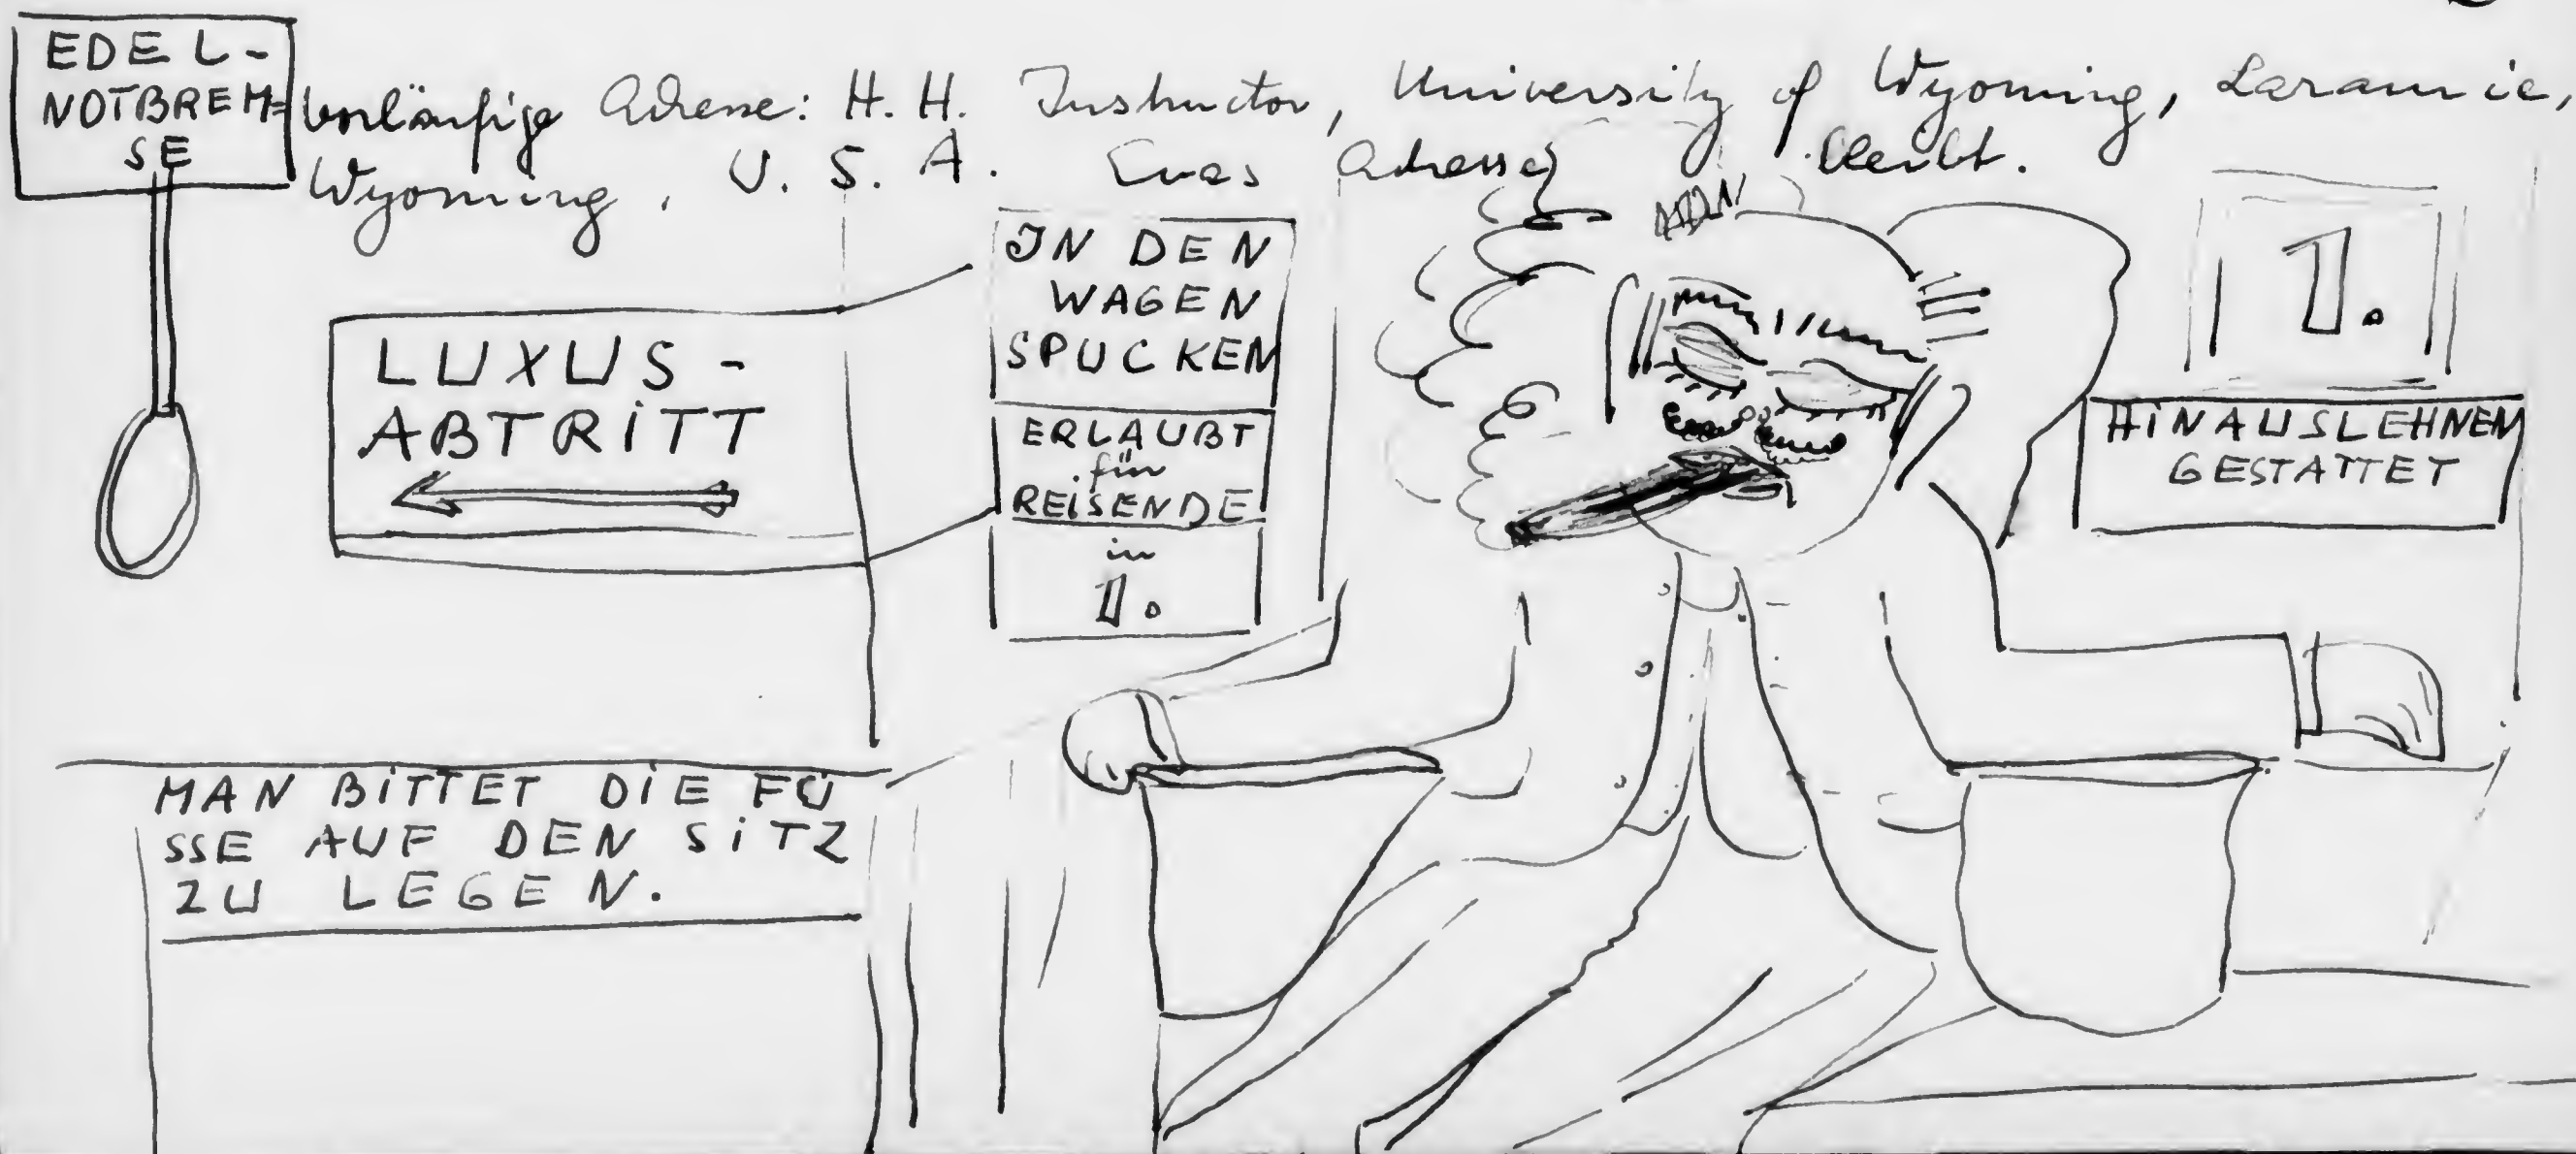 EDEL-
NOTBREM=
SE
Vorläufige Adresse: H. H. Instructor, University of Wyoming, Laramie,
Wyoming, U. S. A. Evas Adresse bleibt.
LUXUS-
ABTRITT
IN DEN
WAGEN
SPUCKEN
ERLAUBT
für
REISENDE
in
1.
1.
HINAUSLEHNEN
GESTATTET
MAN BITTET DIE FÜ
SSE AUF DEN SITZ
ZU LEGEN.